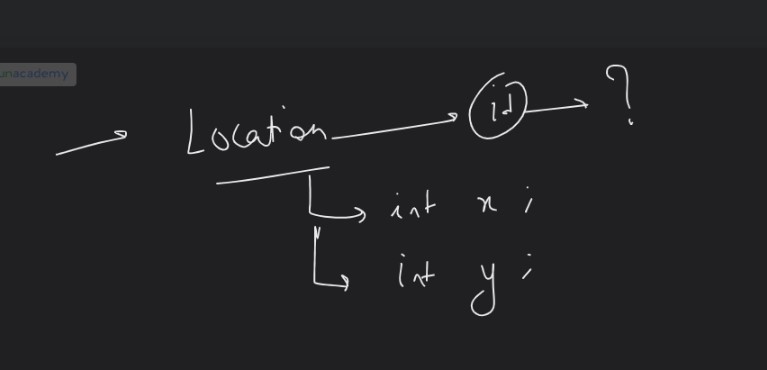 unacademy
Location id ?
int x ;
int y ;